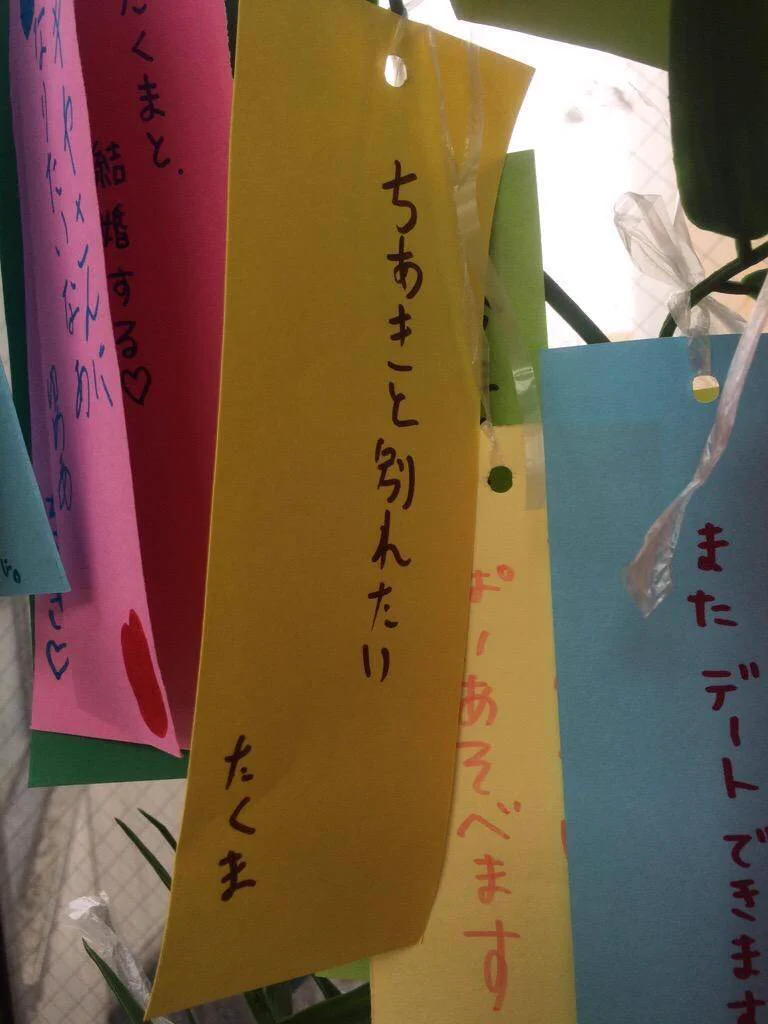 またデートできます
ぱーあそべます
ちあきと別れたい
たくま
たくまと.
結婚する♡
なりたい、